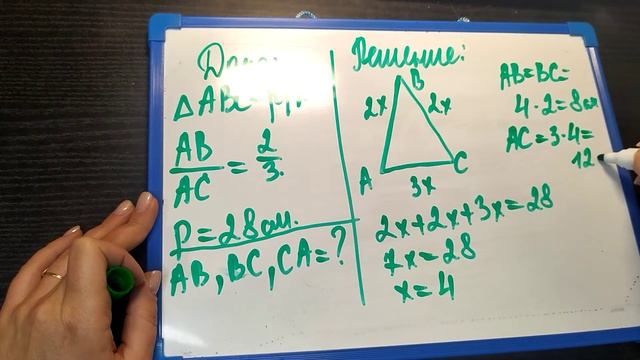 △ABC
AB/AC = 2/3.
P=28см.
AB, BC, CA=?
Решение:
B
2x
2x
A
C
3x
2x+2x+3x=28
7x=28
x=4
AB=BC=
4·2=8см
AC=3·4=
12